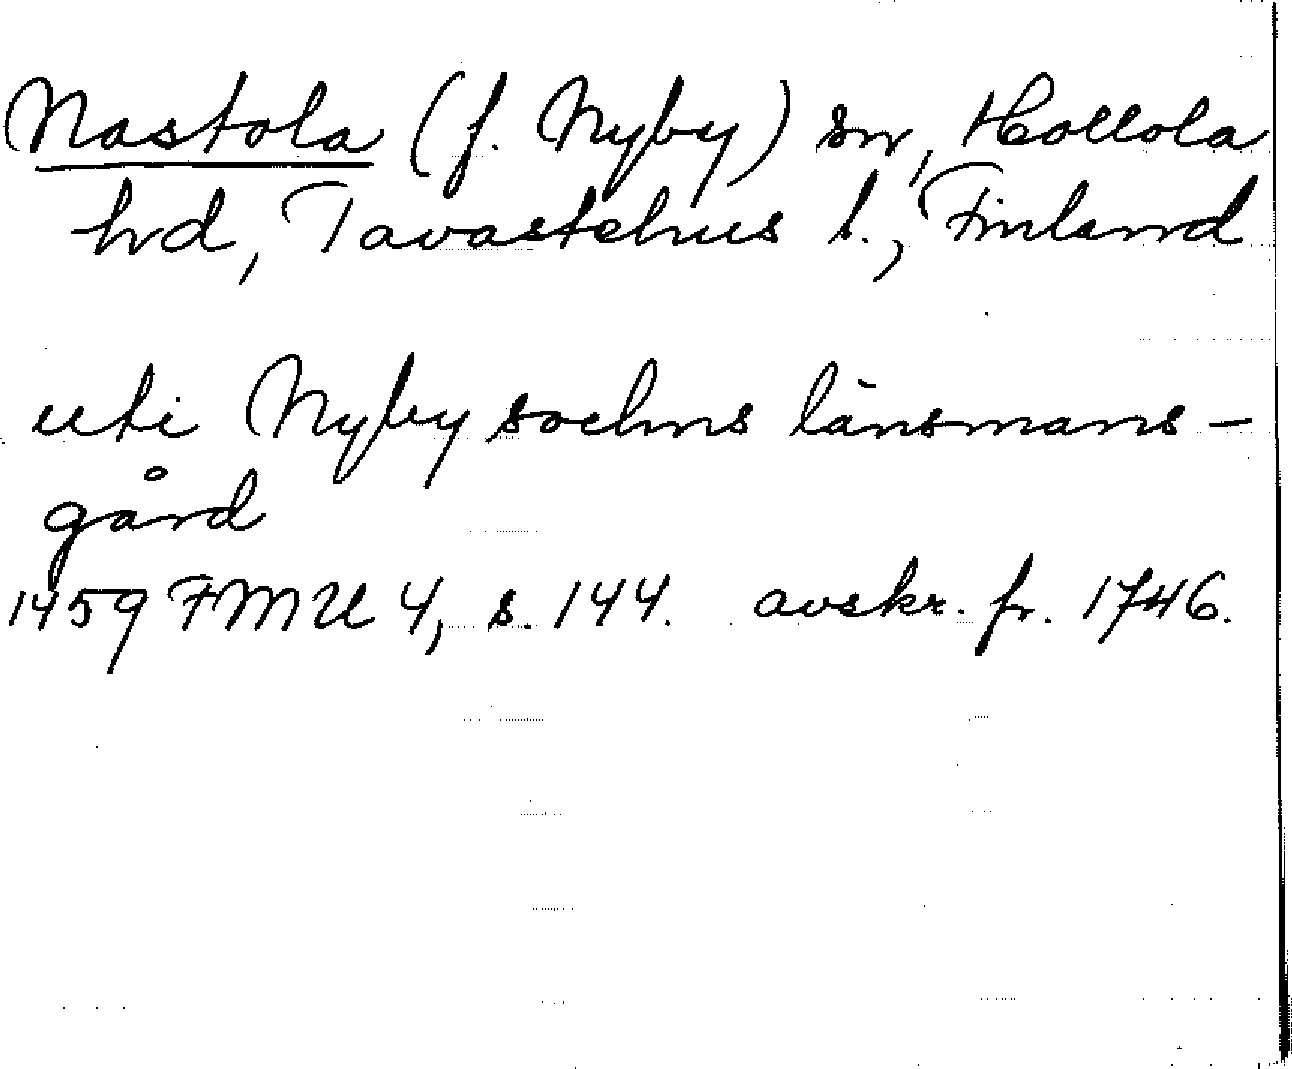 Nastola (f. Nyby) sn, Hollola
hd, Tavastehus l., Finland
uti Nyby sochns länsmans-
gård
1459 FMU 4, s. 144. avskr. fr. 1746.